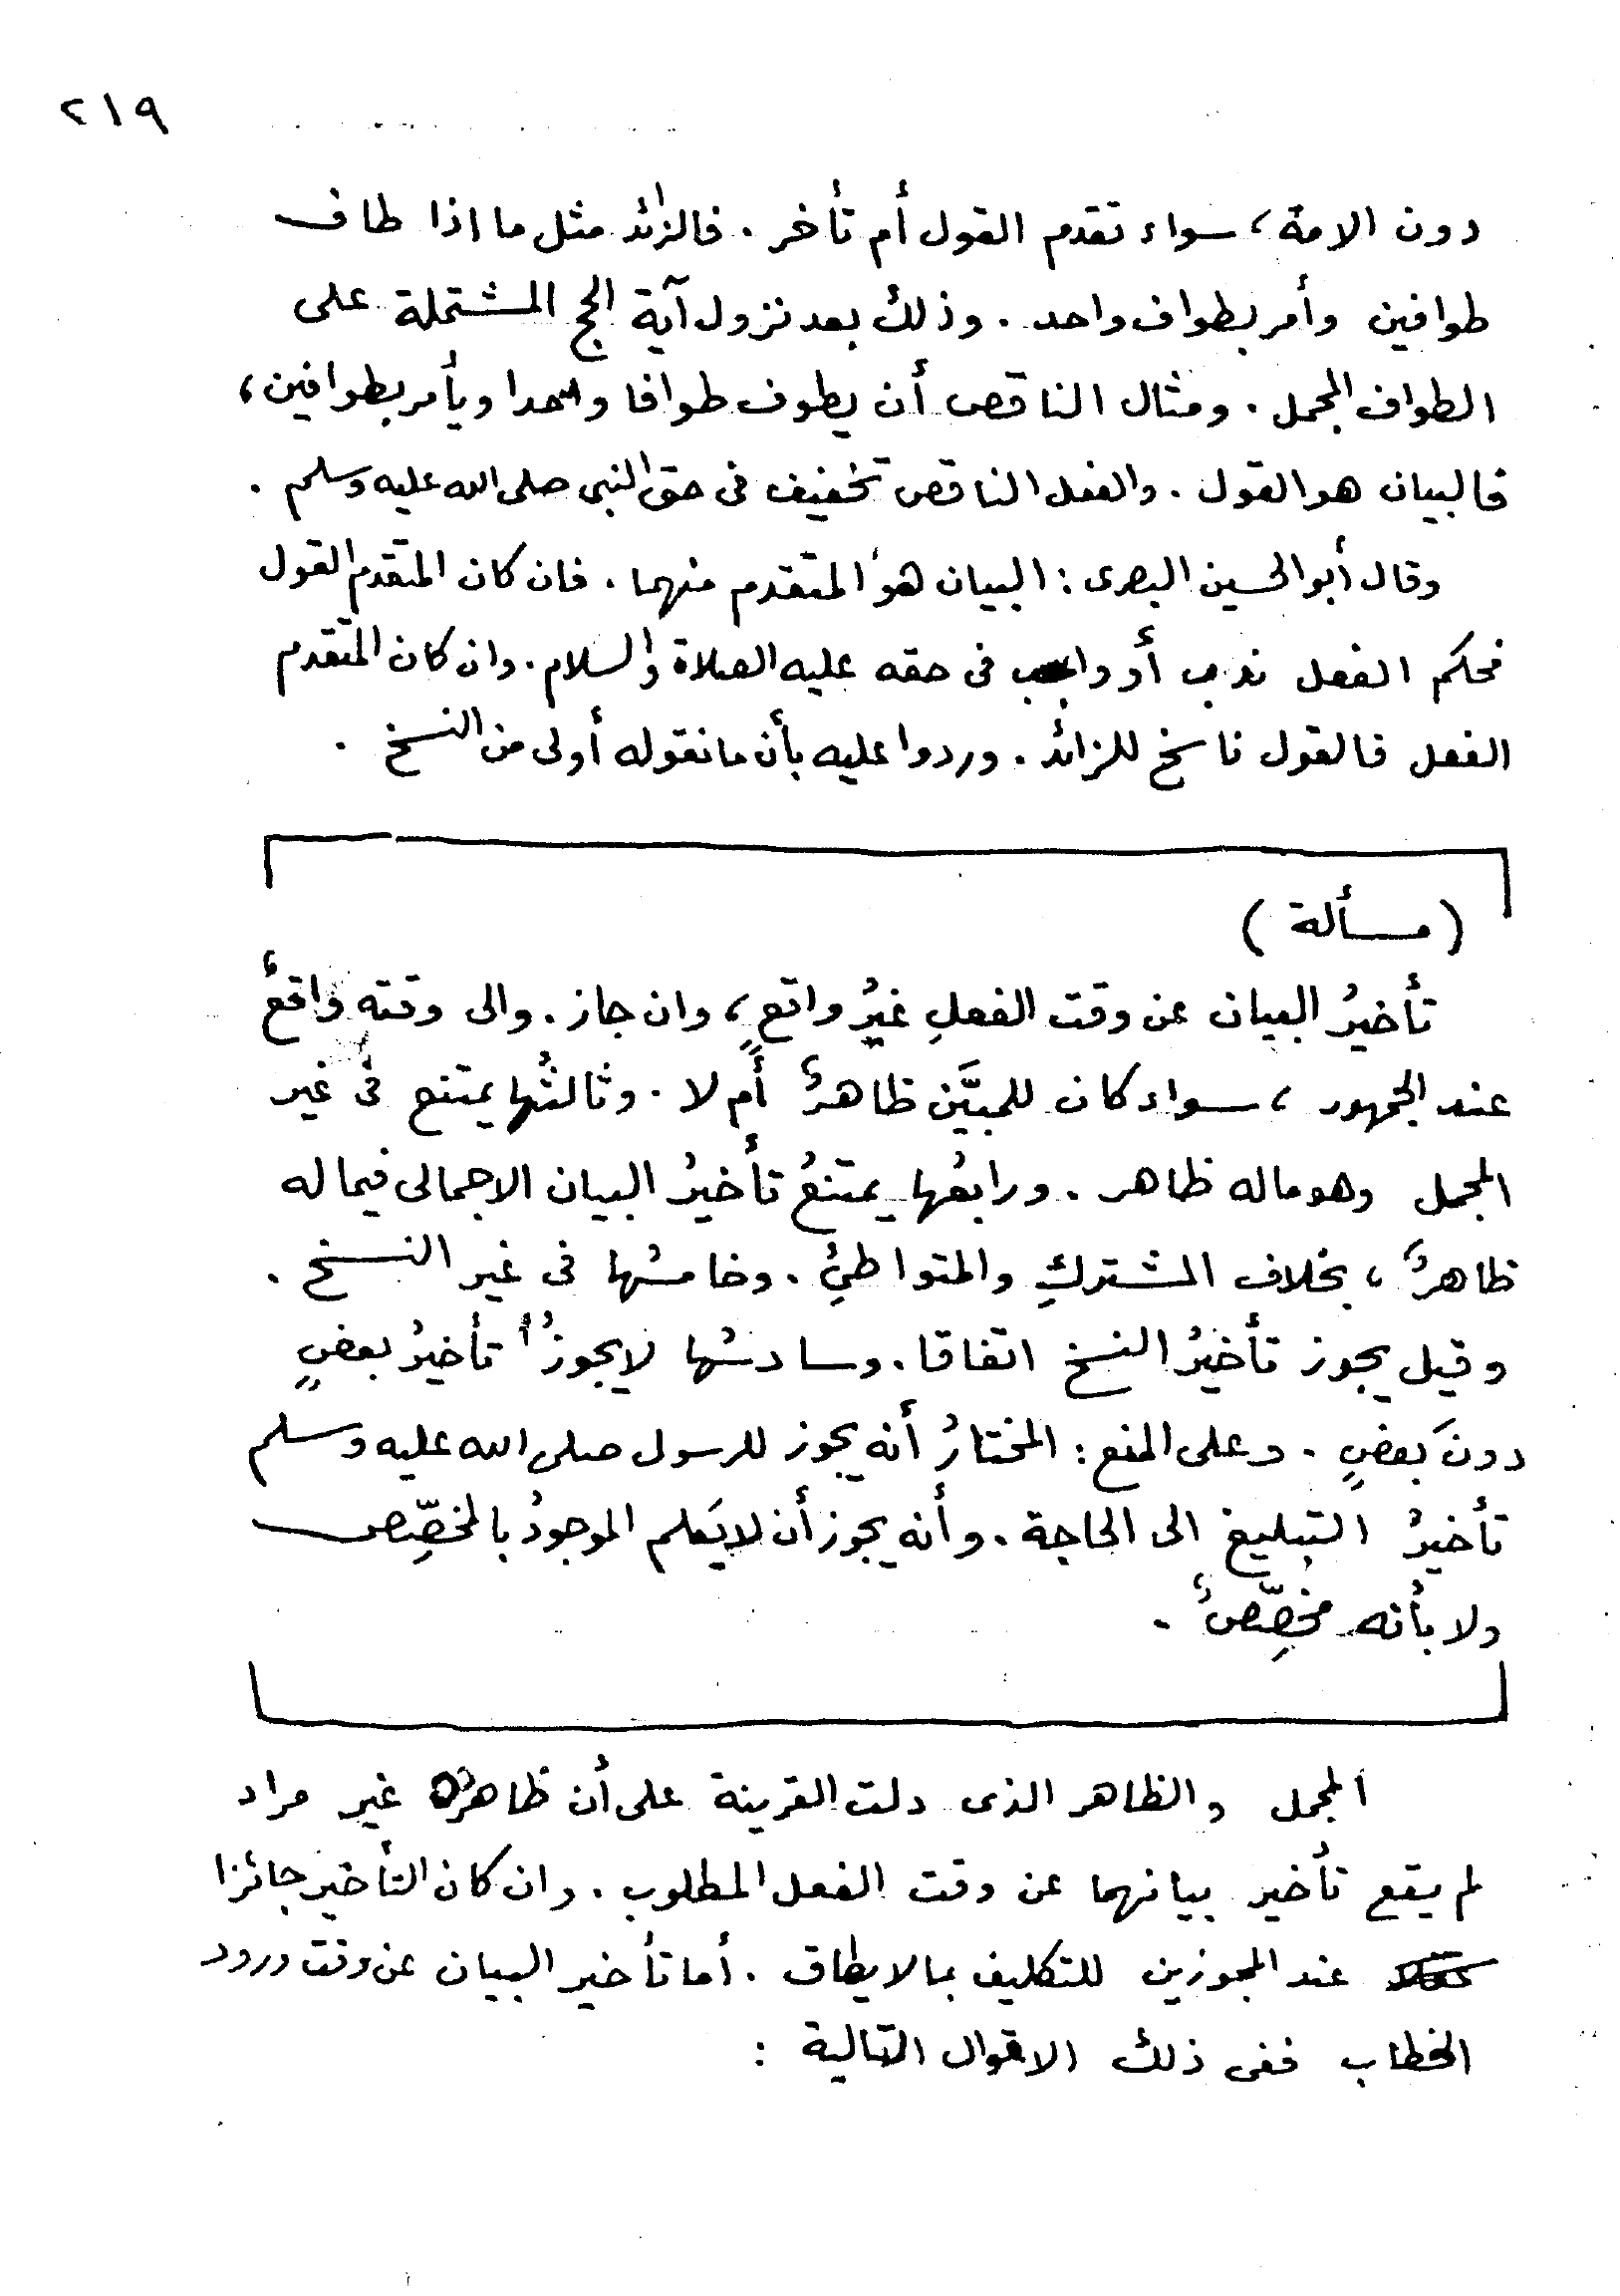 ٢١٩
دون الامة، سواء تقدم القول أم تأخر . فالزائد مثل ما اذا طاف
طوافين وأمر بطواف واحد . وذلك بعد نزول آية الحج المشتملة على
الطواف المجمل . ومثال الناقص أن يطوف طوافا واحدا ويأمر بطوافين،
فالبيان هو القول . والفعل الناقص تخفيف فى حق النبي صلى الله عليه وسلم .
وقال أبو الحسين البصرى : البيان هو المتقدم منهما . فان كان المتقدم القول
فحكم الفعل ندب أو واجب فى حقه عليه الصلاة والسلام . وان كان المتقدم
الفعل فالقول ناسخ للزائد . وردوا عليه بأن ما نقوله أولى من النسخ .
( مسألة )
تأخيرُ البيان عن وقت الفعلِ غيرُ واقعٍ، وان جاز . والى وقته واقعٌ
عند الجمهور ، سواء كان للمبيَّن ظاهرٌ أم لا . وثالثُها يمتنع فى غير
المجمل وهو ماله ظاهر . ورابعُها يمتنعُ تأخيرُ البيان الاجمالى فيما له
ظاهرٌ ، بخلاف المشتركِ والمتواطئِ . وخامسُها فى غير النسخ .
وقيل يجوز تأخيرُ النسخ اتفاقا . وسادسُها لا يجوزُ تأخيرُ بعضٍ
دونَ بعضٍ . وعلى المنع : المختارُ أنه يجوز للرسول صلى الله عليه وسلم
تأخيرُ التبليغ الى الحاجة . وأنه يجوز أن لا يَعلم الموجودُ بالمخصِّص
ولا بأنه مخصِّصٌ .
المجمل والظاهر الذى دلت القرينة على أن ظاهره غير مراد
لم يقع تأخير بيانهما عن وقت الفعل المطلوب . وان كان التأخير جائزا
عند المجوزين للتكليف بما لا يطاق . أما تأخير البيان عن وقت ورود
الخطاب ففى ذلك الاقوال التالية :